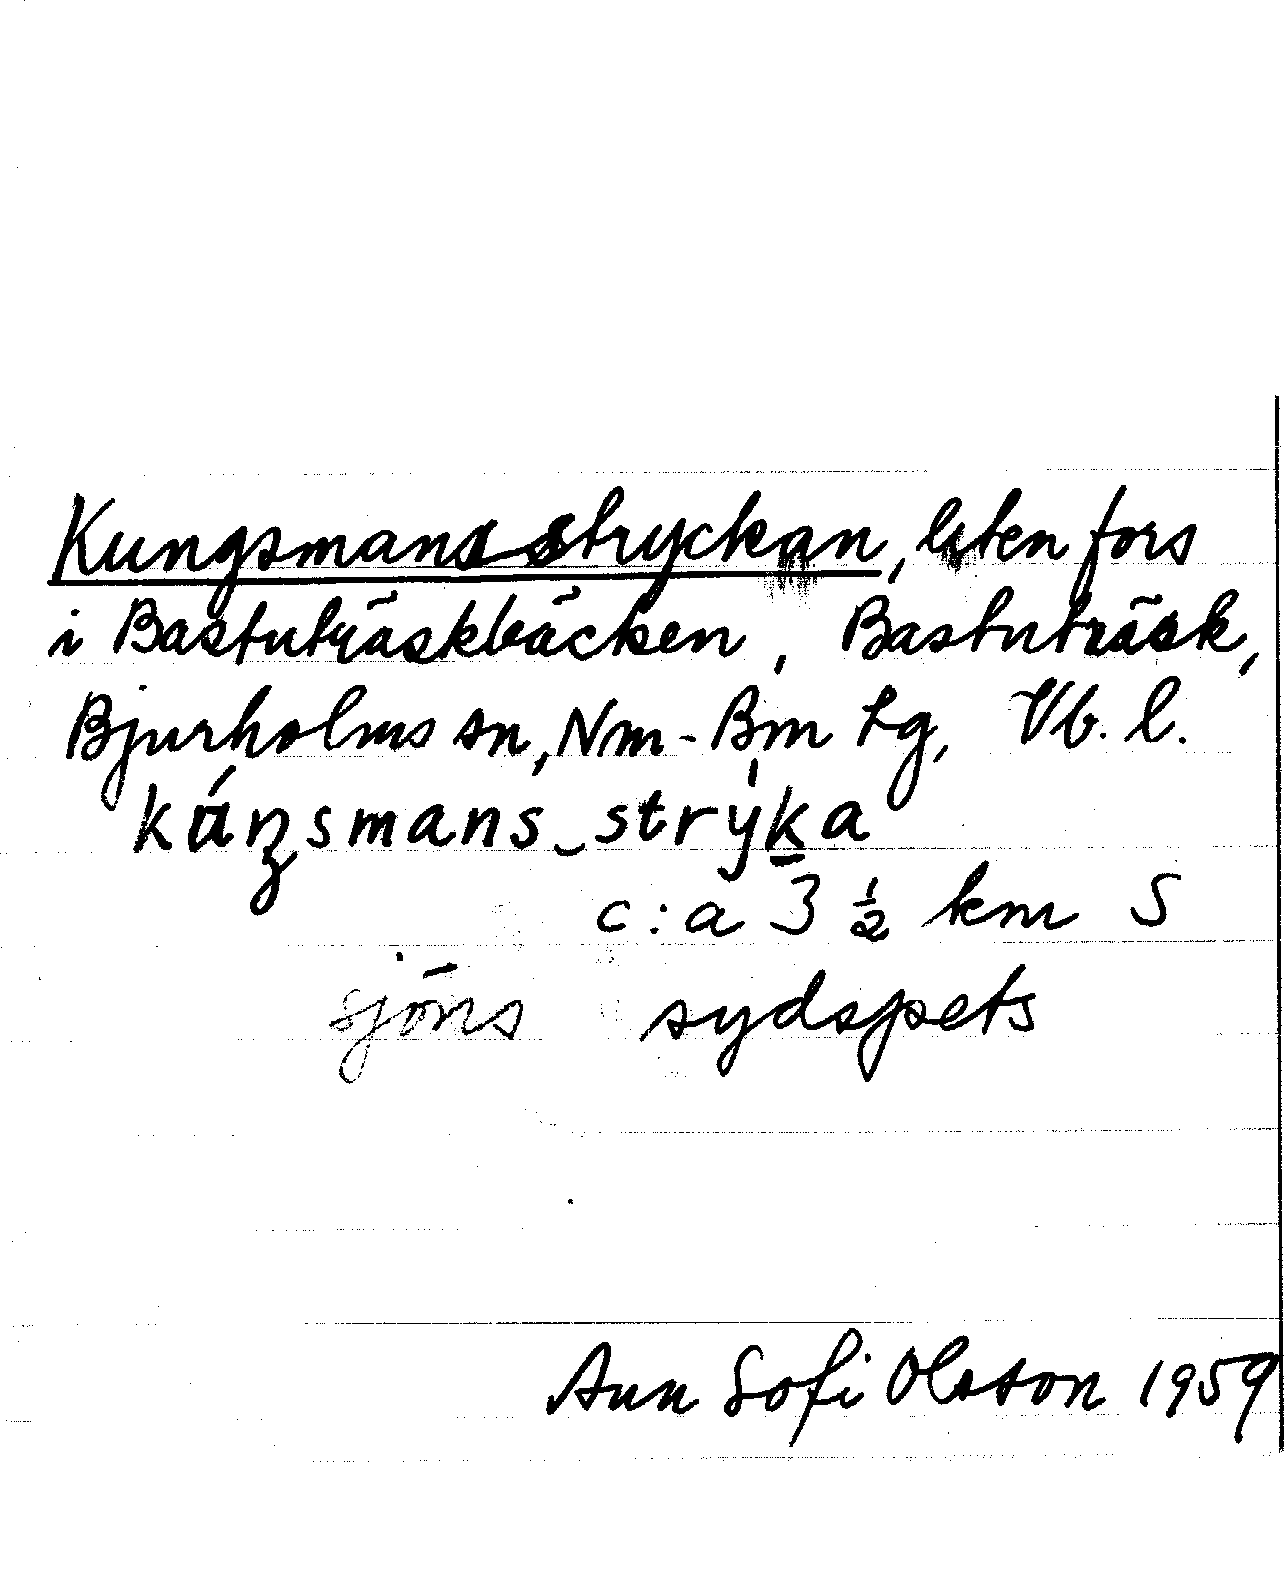 Kungsmansstryckan, liten fors
i Bastuträskbäcken, Bastuträsk,
Bjurholms sn, Nm-Bm tg, Vb. l.
kúŋsmans‿strỳk̲a
c:a 3 ½ km S
sjöns sydspets
Ann Sofi Olsson 1959